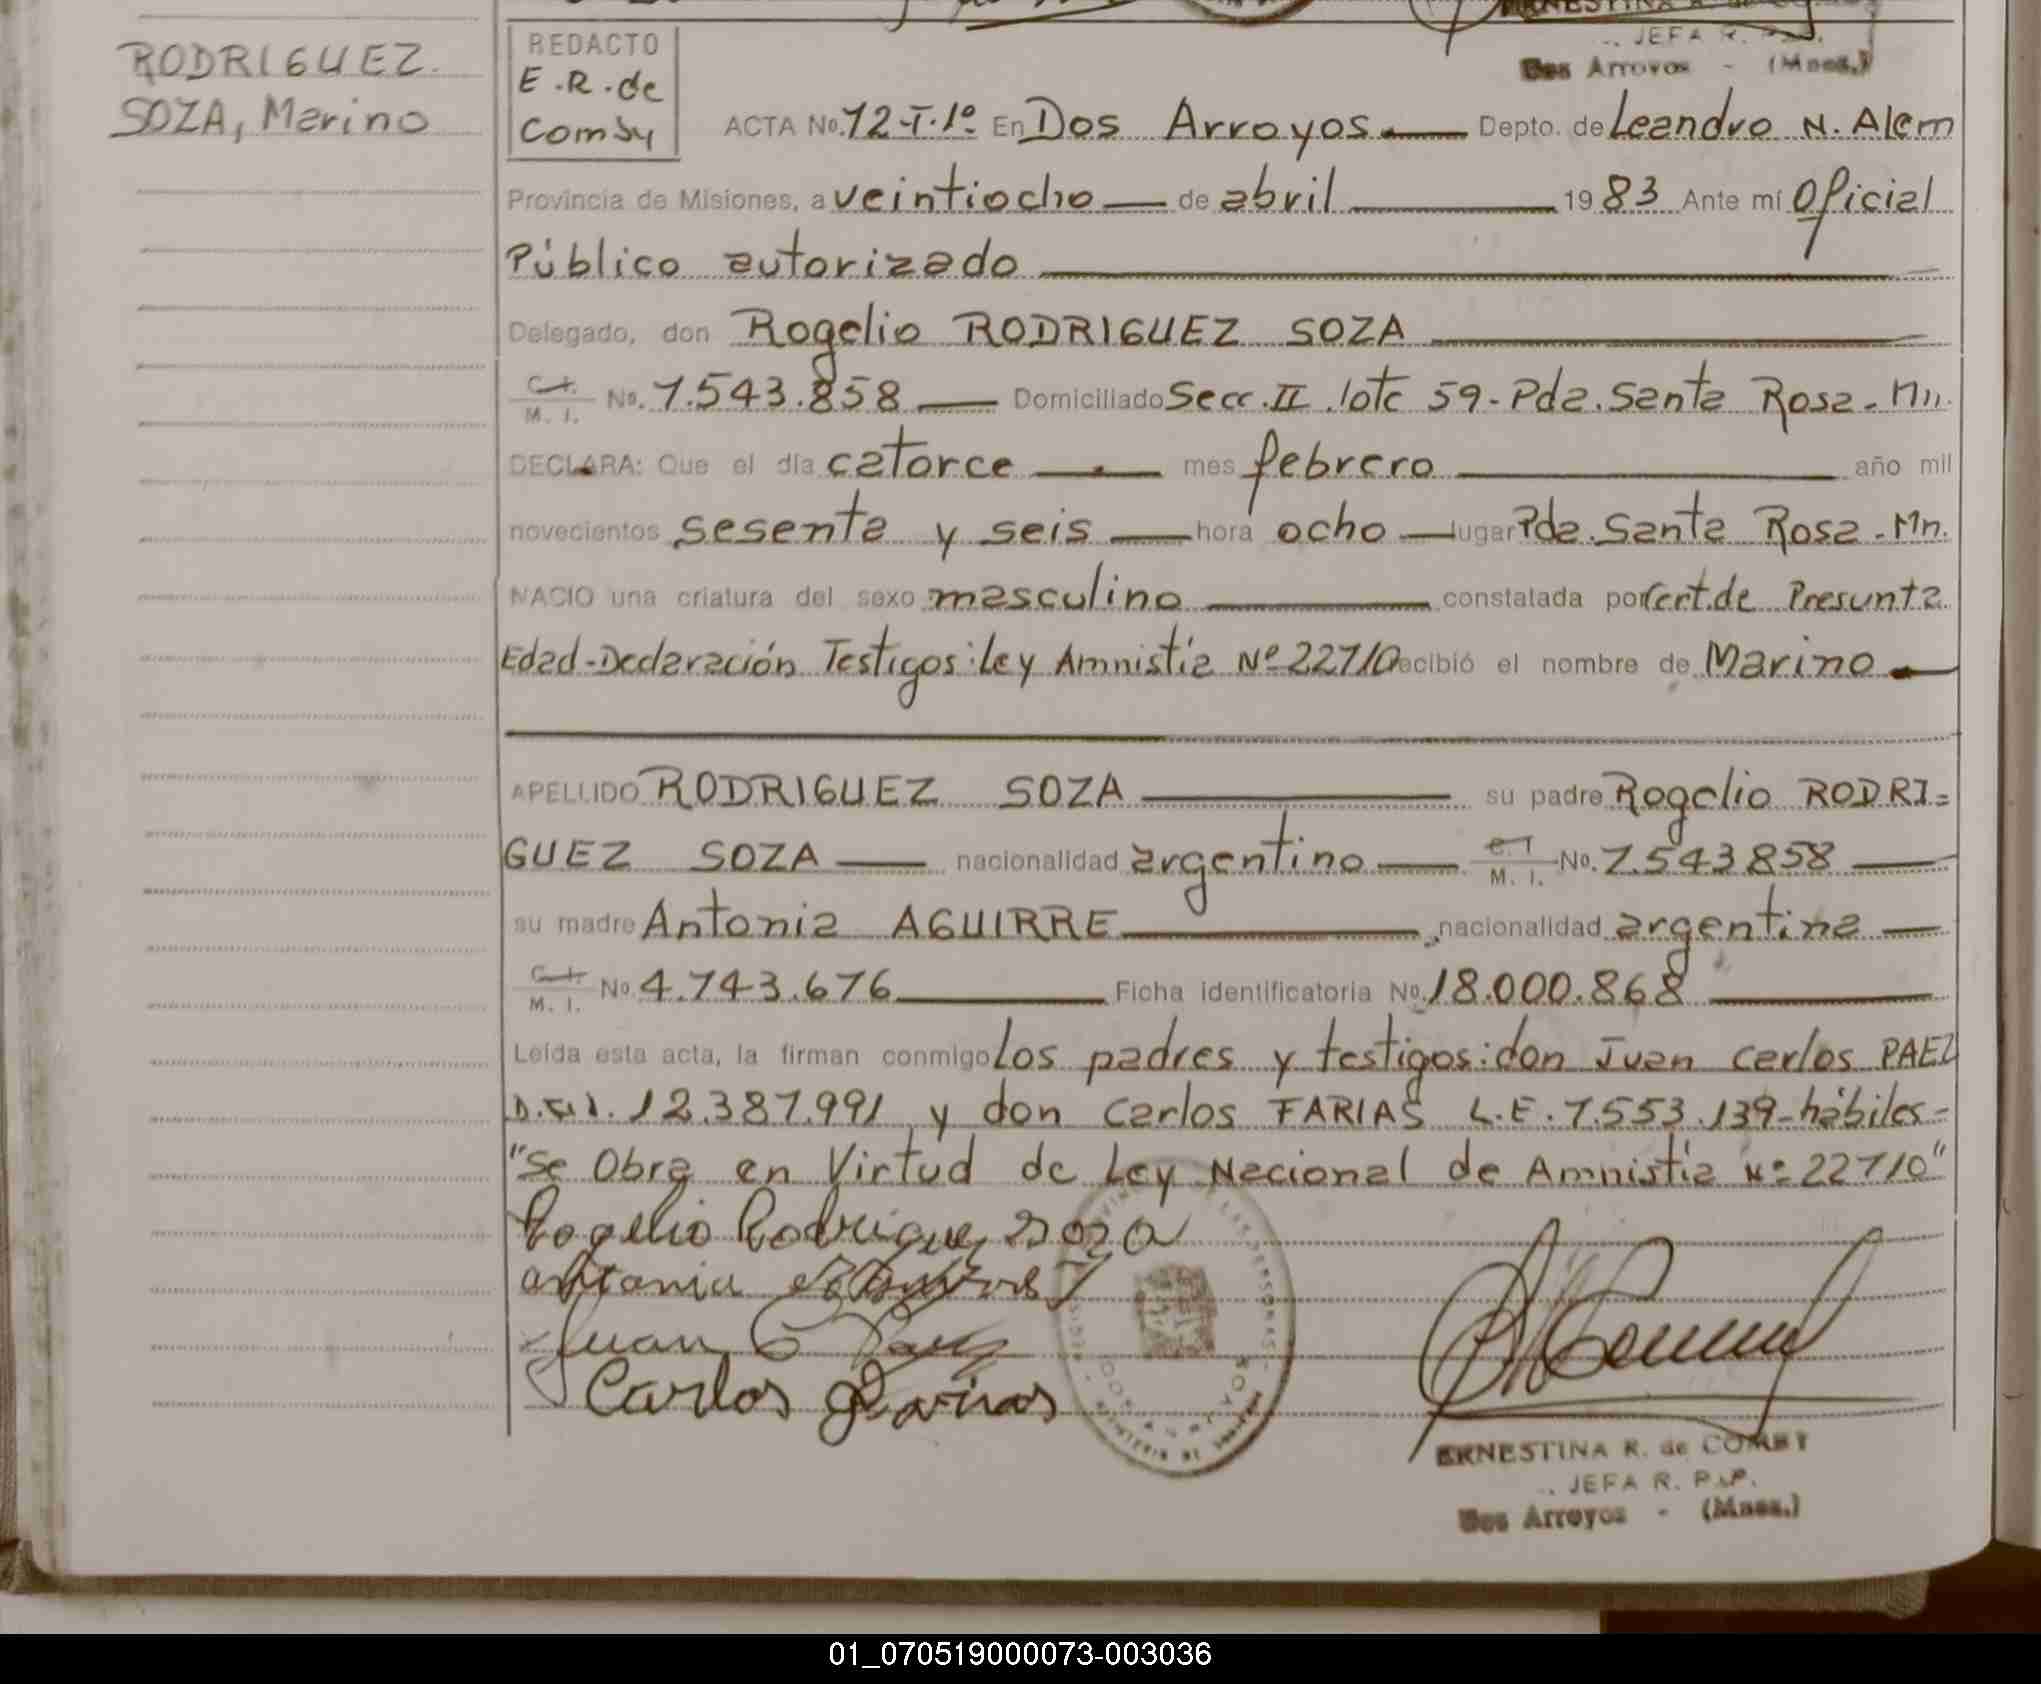 RODRIGUEZ
SOZA, Marino
REDACTO
E.R.de
Comby
JEFA R.
Dos Arroyos - (Mnes.)
ACTA No. 72-T.1º En Dos Arroyos Depto. de Leandro N. Alem
Provincia de Misiones, a veintiocho de abril 1983 Ante mí Oficial
Público autorizado
Delegado, don Rogelio RODRIGUEZ SOZA
C.I. M. I. No. 7.543.858 Domiciliado Secc. II lote 59-Pda. Santa Rosa-Mn.
DECLARA: Que el día catorce mes febrero año mil
novecientos sesenta y seis hora ocho lugar Pda. Santa Rosa-Mn.
NACIO una criatura del sexo masculino constatada por Cert. de Presunta
Edad-Declaración Testigos: Ley Amnistía Nº 22710 recibió el nombre de Marino
APELLIDO RODRIGUEZ SOZA su padre Rogelio RODRI=
GUEZ SOZA nacionalidad argentino C.I. M. I. No. 7.543858
su madre Antonia AGUIRRE nacionalidad argentina
C.I. M. I. No. 4.743.676 Ficha identificatoria No. 18.000.868
Leída esta acta, la firman conmigo Los padres y testigos: don Juan Carlos PAEZ
D.N.I. 12.387.991 y don Carlos FARIAS L.E. 7.553.139-hábiles=
"Se Obra en Virtud de Ley Nacional de Amnistía Nº 22710"
Rogelio Rodriguez Soza
Antonia
Juan C Paez
Carlos Farias
ERNESTINA R. de COMBY
JEFA R. P.P.
Dos Arroyos - (Mnes.)
01_070519000073-003036